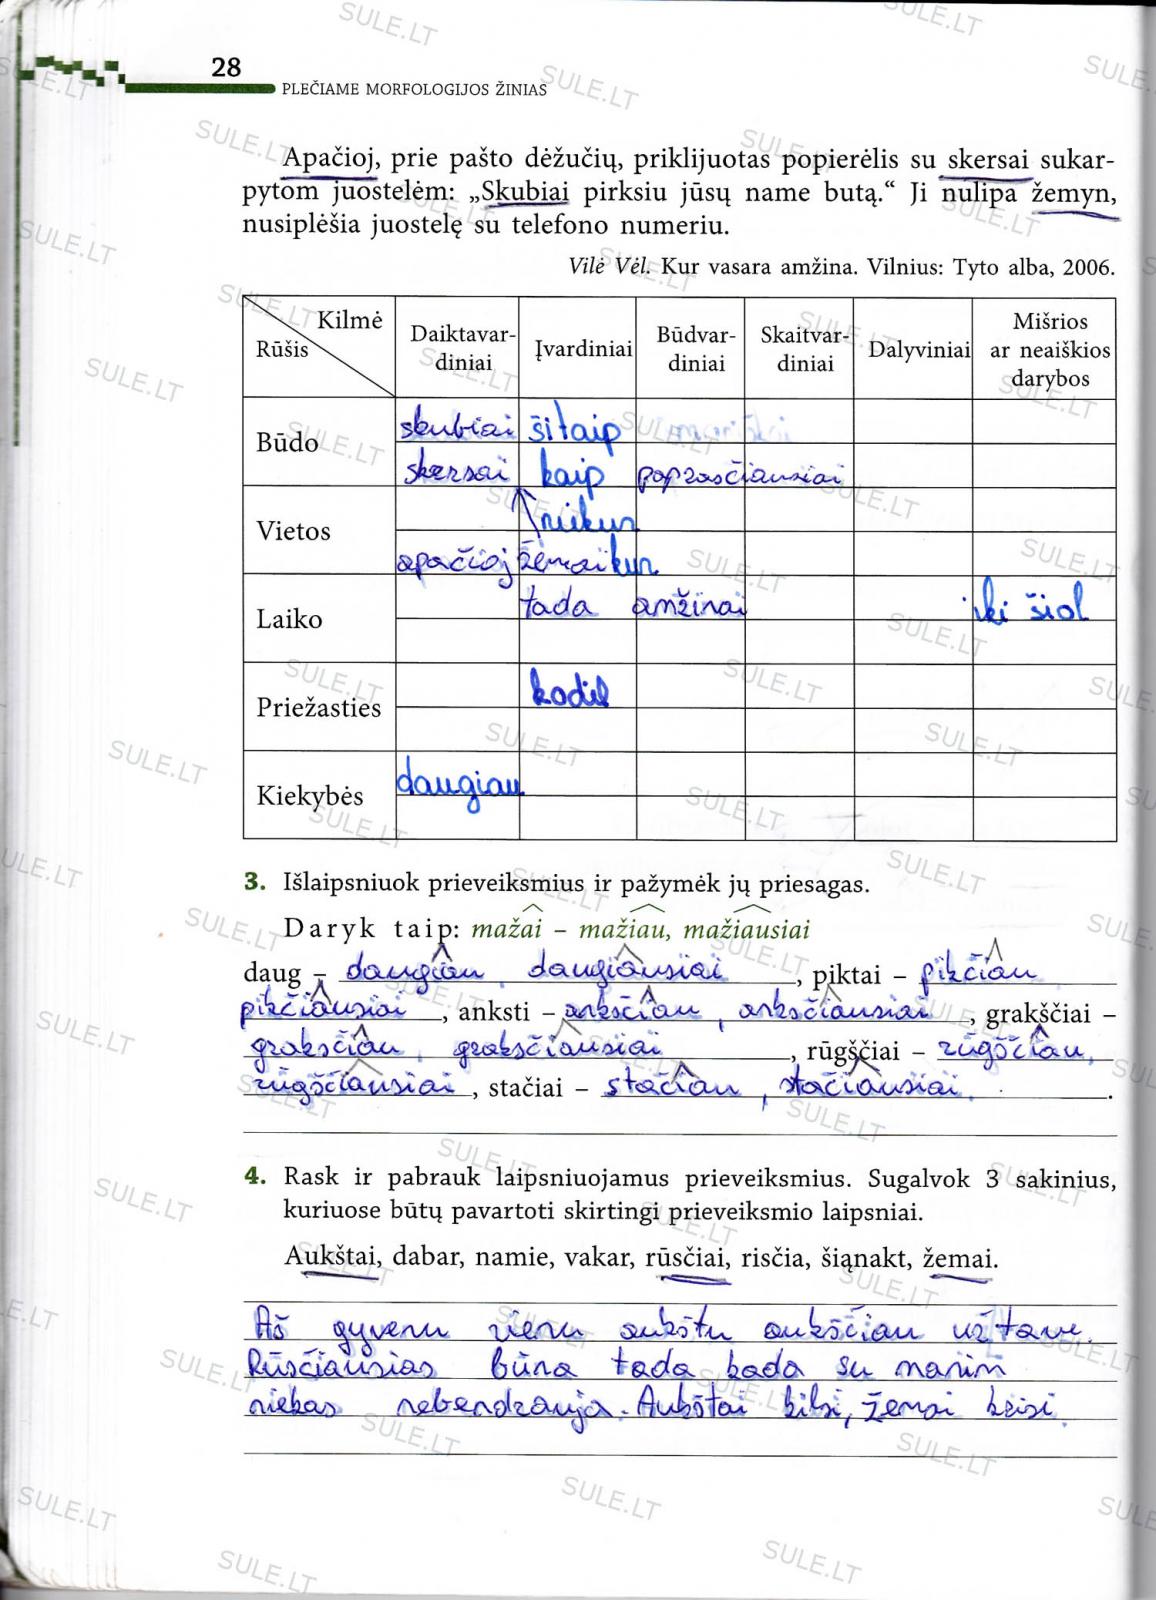 28
PLEČIAME MORFOLOGIJOS ŽINIAS
Apačioj, prie pašto dėžučių, priklijuotas popierėlis su skersai sukar-
pytom juostelėm: „Skubiai pirksiu jūsų name butą.“ Ji nulipa žemyn,
nusiplėšia juostelę su telefono numeriu.
Vilė Vėl. Kur vasara amžina. Vilnius: Tyto alba, 2006.
Kilmė
Rūšis
Daiktavar-
diniai
Įvardiniai
Būdvar-
diniai
Skaitvar-
diniai
Dalyviniai
Mišrios
ar neaiškios
darybos
Būdo
skubiai šitaip
skersai kaip poprasčiausiai
Vietos
niekur
apačioj žemai kur
Laiko
tada amžinai iki šiol
Priežasties
kodėl
Kiekybės
daugiau
3. Išlaipsniuok prieveiksmius ir pažymėk jų priesagas.
Daryk taip: mažai – mažiau, mažiausiai
daug – daugiau, daugiausiai, piktai – pikčiau
pikčiausiai, anksti – anksčiau, anksčiausiai, grakščiai –
grakščiau, grakščiausiai, rūgščiai – rūgščiau,
rūgščiausiai, stačiai – stačiau, stačiausiai.
4. Rask ir pabrauk laipsniuojamus prieveiksmius. Sugalvok 3 sakinius,
kuriuose būtų pavartoti skirtingi prieveiksmio laipsniai.
Aukštai, dabar, namie, vakar, rūsčiai, risčia, šiąnakt, žemai.
Aš gyvenu vienu aukštu aukščiau už tave.
Rūsčiausias būna tada kada su manim
niekas nebendrauja. Aukštai kilsi, žemai krisi.
SULE.LT